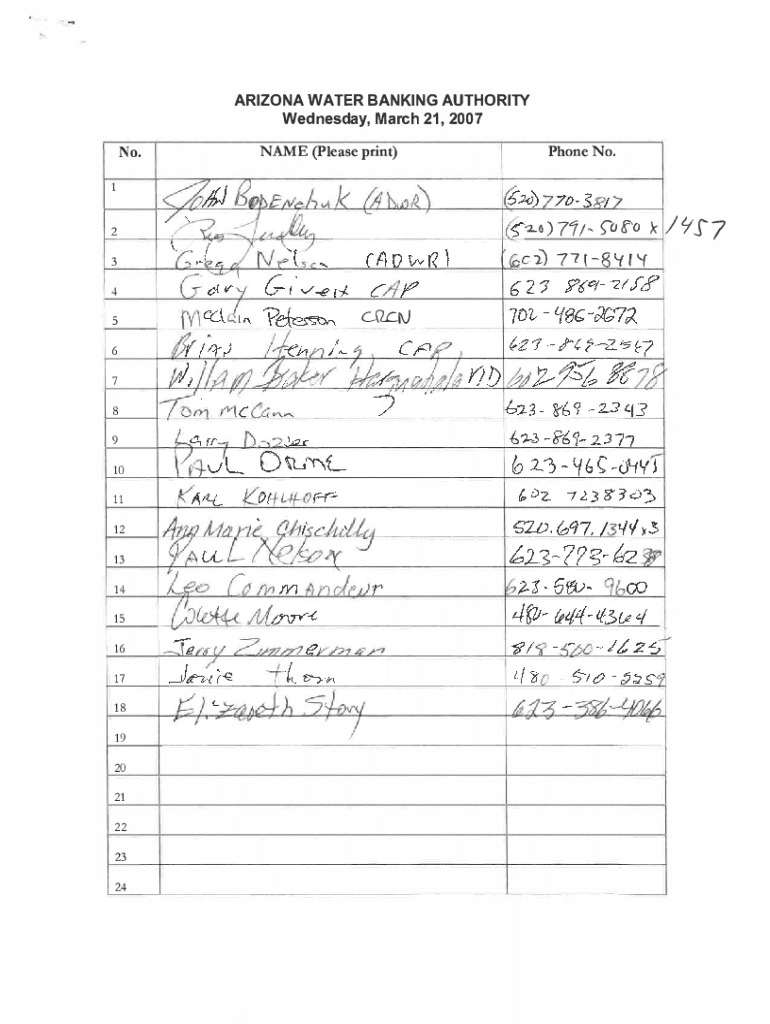 ARIZONA WATER BANKING AUTHORITY
Wednesday, March 21, 2007
No. NAME (Please print) Phone No.
1 John Bodenchuk (ADWR) (520)770-3817
2 (520)791-5080 x 1457
3 Gregg Nelson (ADWR) (602) 771-8414
4 Gary Givens CAP 623 869-2158
5 McClain Peterson CRCN 702-486-2672
6 Brian Henning, CAP 623-869-2567
7 William Baker VID 602 956 8878
8 Tom McCann 623-869-2343
9 Larry Dozier 623-869-2377
10 PAUL ORME 623-465-0445
11 KARL KOHLHOFF 602 7238303
12 Ann Marie Chischilly 520.697.1344x3
13 PAUL Nelson 623-773-623
14 Leo Commandeur 623-580-9600
15 Colette Moore 480-644-4364
16 Jerry Zimmerman 818-500-1625
17 Janie Thom 480-510-5259
18 Elizabeth Story 623-386-4066
19
20
21
22
23
24